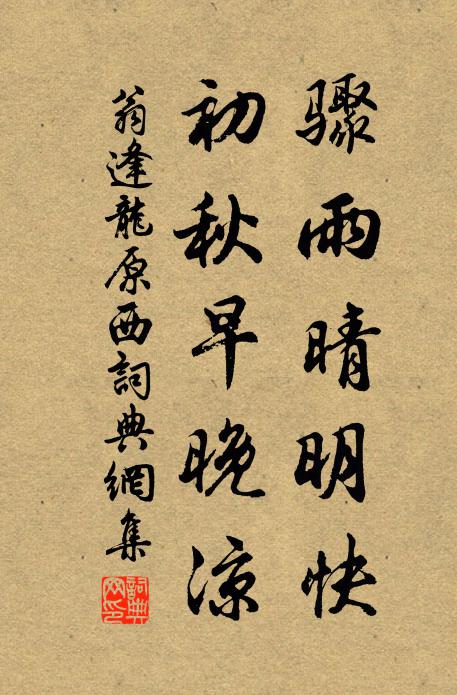 骤雨晴明快
初秋早晚凉
翁逢龍原西詞典網集
詞典
网印